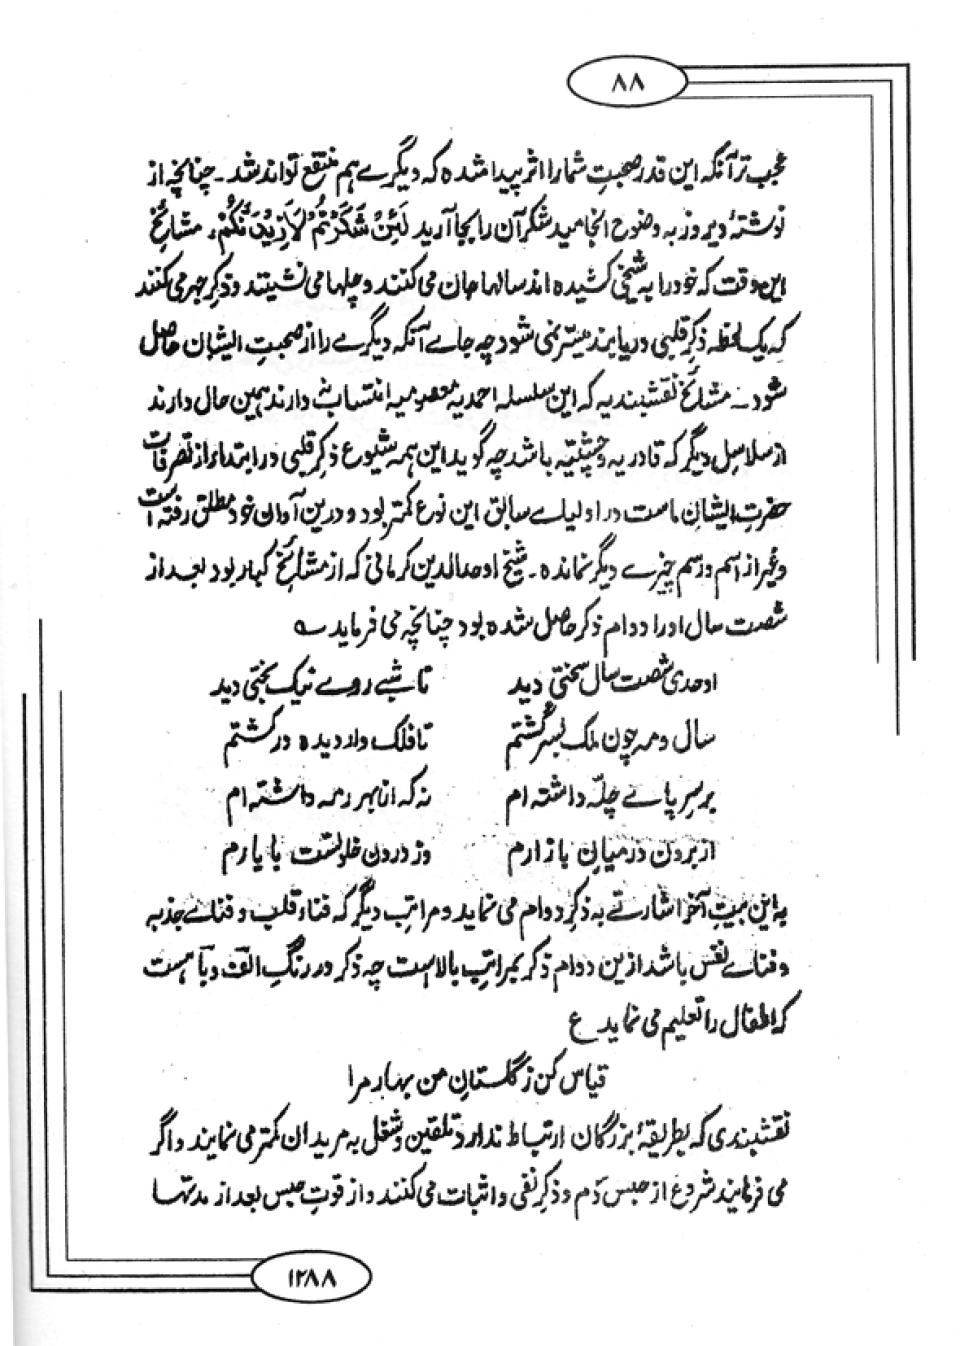 ۸۸
عجب تر آنکه این قدر صحبتِ شما را اثر پیدا شده که دیگرے هم منتفع تواند شد۔ چنانچه از
نوشتهٔ دیروز به وضوح انجامید شکر آن را بجا آرید لَئِنْ شَکَرْتُمْ لَاَزِیْدَنَّکُمْ، مشائخِ
این وقت که خود را به شیخی کشیده اند سالها جان می کنند و چلها می نشینند و ذکرِ جهر می کنند
که یک لحظه ذکرِ قلبی دریابند میسّر نمی شود چه جاے آنکه دیگرے را از صحبتِ ایشان حاصل
شود۔ مشائخ نقشبندیه که این سلسله احمدیه معصومیه انتساب نه دارند همین حال دارند
از سلاسلِ دیگر که قادریه و چشتیه باشد چه گوید این همه شیوعِ ذکرِ قلبی در ابتداء از تصرفات
حضرتِ ایشانِ ماست در اولیاے سابق این نوع کمتر بود و درین آوان خود مطلق رفته است
و غیر از اسم و رسم چیزے دیگر نمانده۔ شیخ اوحدالدین کرمانی که از مشائخِ کبار بود بعد از
شصت سال او را دوام ذکر حاصل شده بود چنانچه می فرماید ؎
اوحدی شصت سال سختی دید تا شبے روے نیک بختی دید
سال و مه چون ملک بسر گشتم تا فلک وار دیده ور گشتم
بر سرِ پاے چلّه داشته ام نه که از بهر رمه داشته ام
از برون در میانِ بازارم وز درون خلوتست با یارم
به این بیتِ آخر اشارتے به ذکرِ دوام می نماید و مراتبِ دیگر که فناء قلب و فناے جذبه
و فناے نفس باشد ازین دوام ذکر بمراتب بالاست چه ذکر در رنگِ الف و با هست
که اطفال را تعلیم می نماید ع
قیاس کن ز گلستانِ من بهار مرا
نقشبندی که بطریقهٔ بزرگان ارتباط ندارد تلقین و شغل به مریدان کمتر می نمایند و اگر
می فرمایند شروع از حبس دَم و ذکرِ نفی و اثبات می کنند و از قوتِ حبس بعد از مدتها
۱۲۸۸